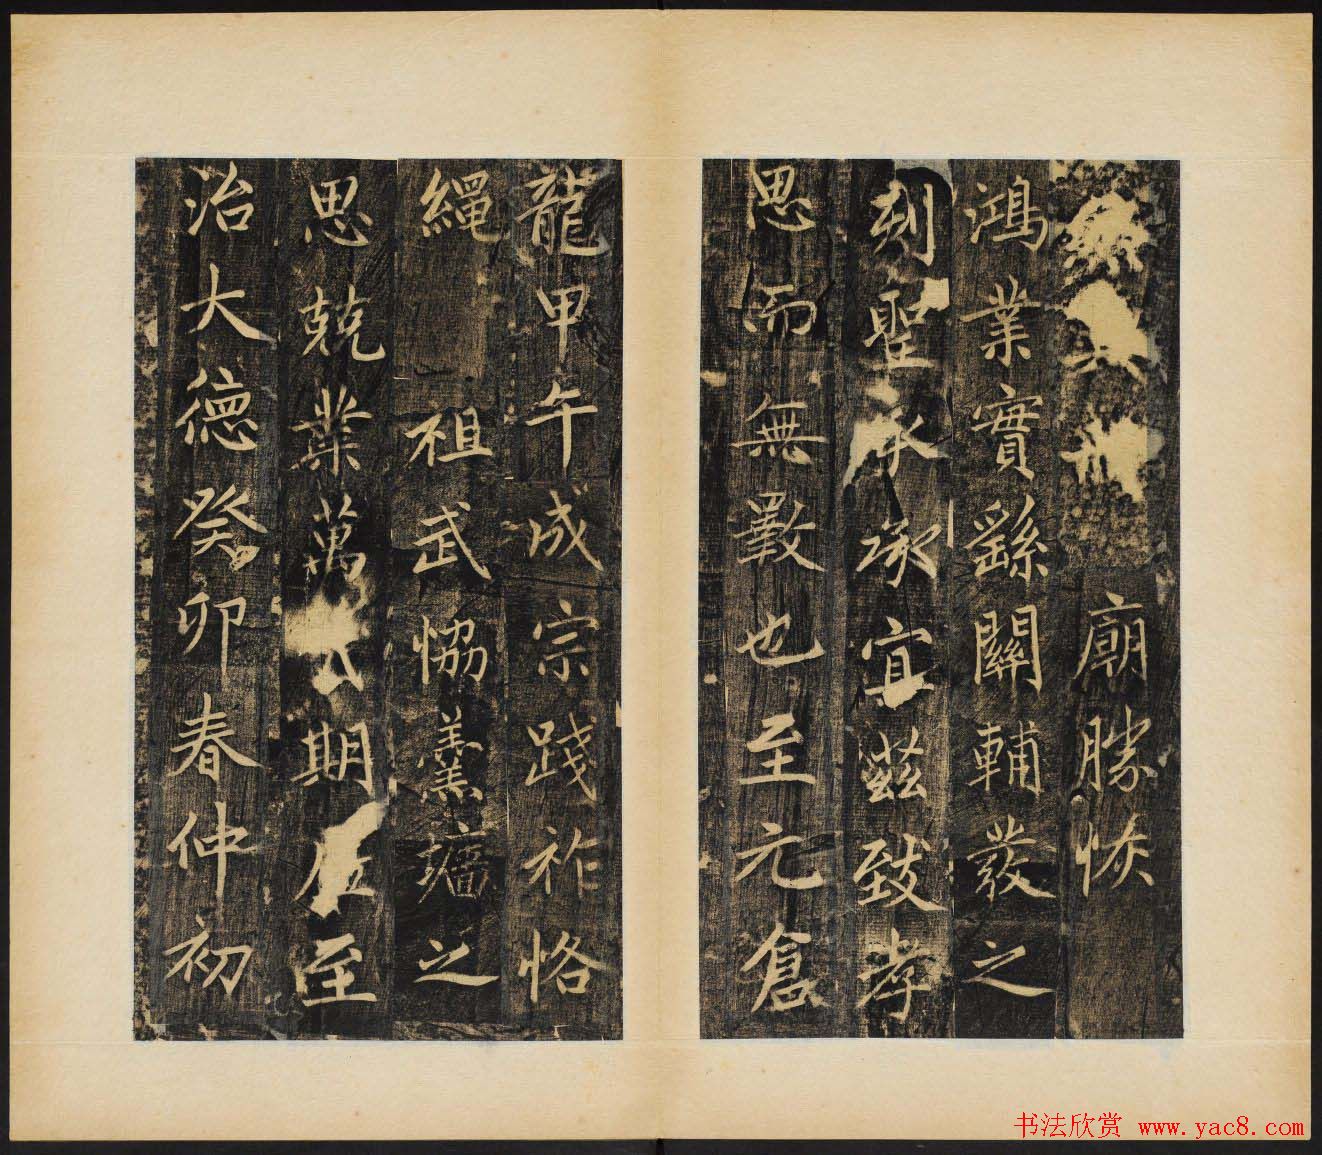 廟勝恢
鴻業實繇關輔發之
刻聖承宜茲致孝
思而無斁也至元倉
龍甲午成宗踐祚恪
繩祖武恊羹墻之
思兢業萬期至
治大德癸卯春仲初
书法欣赏 www.yac8.com